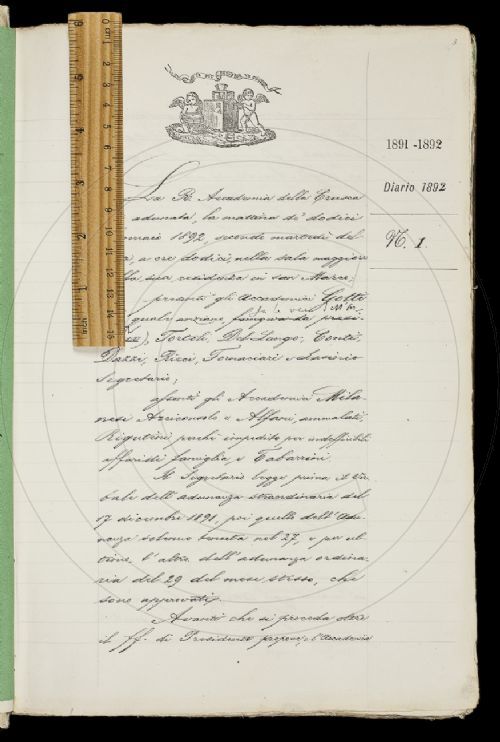 3
1891-1892
Diario 1892
N. 1.
La R. Accademia della Crusca
adunata, la mattina de' dodici
1892, secondo martedì del
a ore dodici, nella sala maggiore
sua residenza in san Marco;
gli Accademici Gotti
quale anziano,
Tortoli, Del Lungo, Conti,
Dazzi, Rizzi, Fornaciari e
Segretario;
assenti gli Accademici Mila-
nesi Arciconsolo e Alfani, ammalati,
Rigutini perché impedito per indeffinibili
affari di famiglia, e Tabarrini.
Il Segretario legge prima il Ver-
bale dell'adunanza straordinaria del
17 dicembre 1891, poi quello dell'Adu-
nanza solenne tenuta nel 27, e per ul-
timo, l'altro dell'adunanza ordina-
ria del 29 del mese stesso, che
sono approvati.
Avanti che si proceda oltre
il ff. di Presidente propone, e l'Accademia